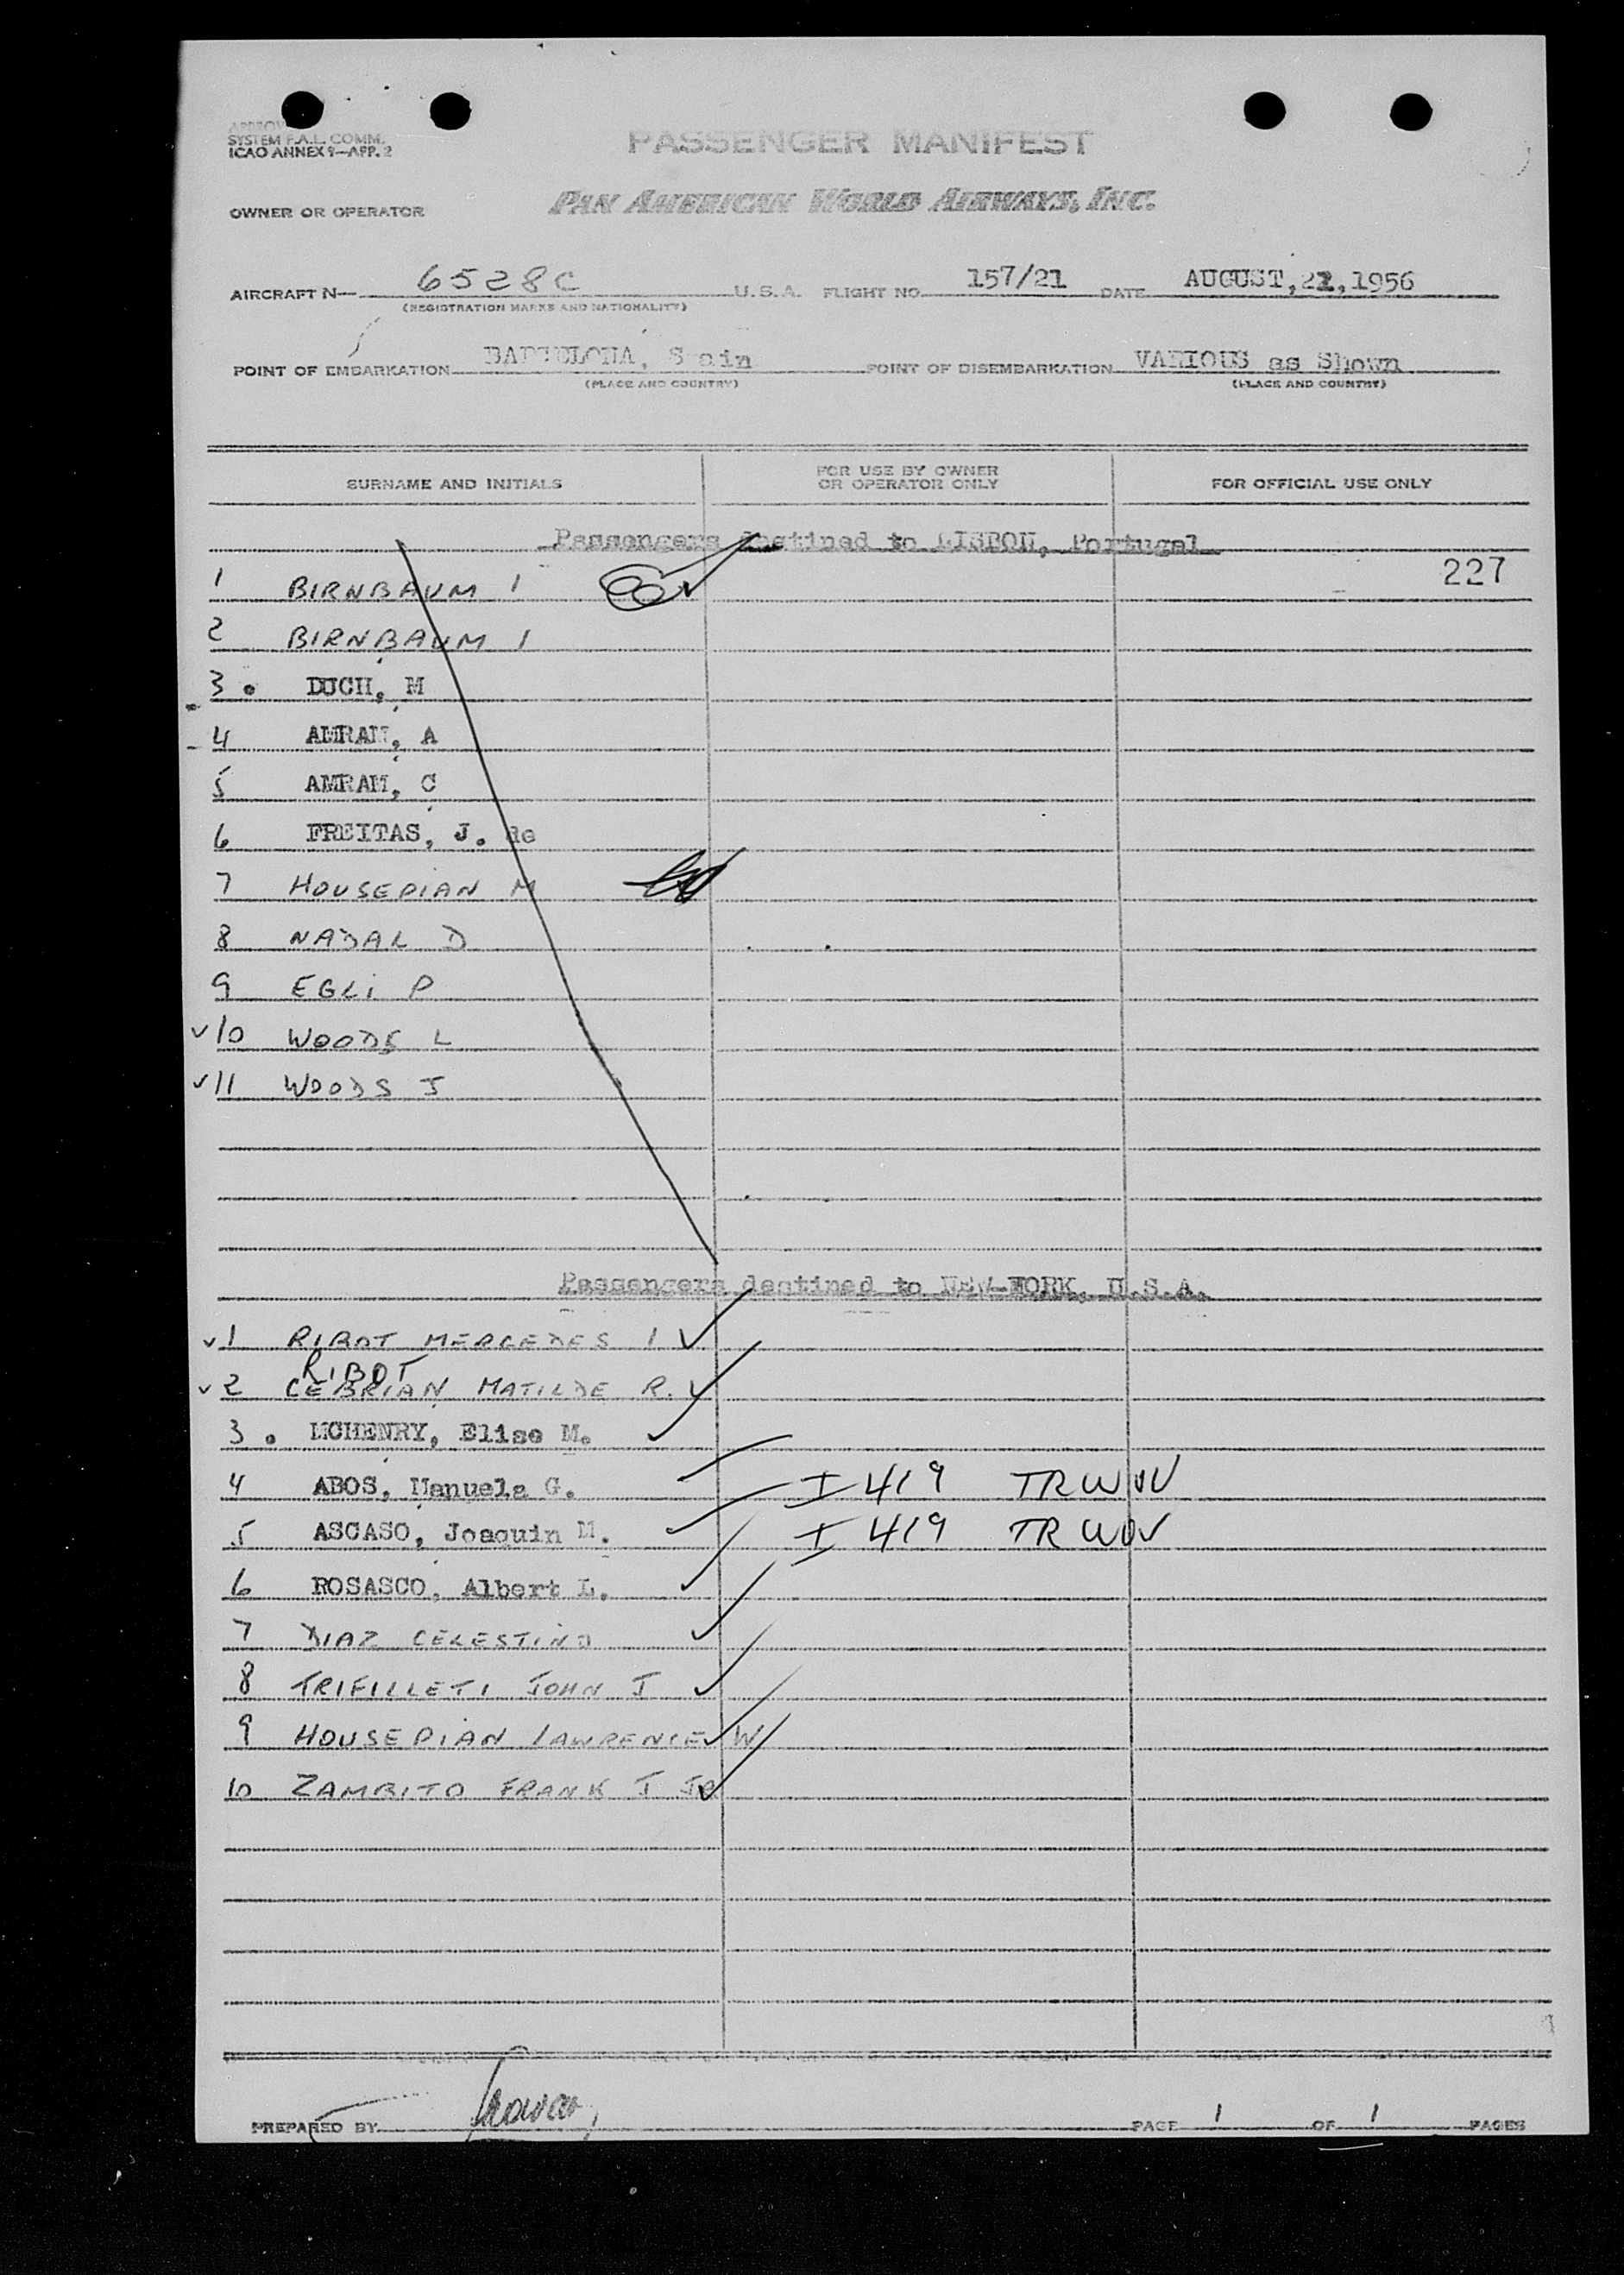 APPROV
SYSTEM F.A.L. COMM.
ICAO ANNEX 9—APP. 2
PASSENGER MANIFEST
OWNER OR OPERATOR PAN AMERICAN WORLD AIRWAYS, INC.
AIRCRAFT N— 6528C U.S.A. FLIGHT NO. 157/21 DATE AUGUST, 21, 1956
(REGISTRATION MARKS AND NATIONALITY)
POINT OF EMBARKATION BARCELONA, Spain POINT OF DISEMBARKATION VARIOUS as Shown
(PLACE AND COUNTRY) (PLACE AND COUNTRY)
SURNAME AND INITIALS FOR USE BY OWNER OR OPERATOR ONLY FOR OFFICIAL USE ONLY
Passengers destined to LISBON, Portugal
227
1 BIRNBAUM I
2 BIRNBAUM I
3 . DUCH, M
4 AMRAM, A
5 AMRAM, C
6 FREITAS, J. de
7 HOUSEPIAN M
8 NADAL D
9 EGLI P
✓10 WOODS L
✓11 WOODS J
Passengers destined to NEW-YORK, U.S.A.
✓1 RIBOT MERCEDES I ✓
RIBOT
✓2 CEBRIAN MATILDE R. ✓
3 . MCHENRY, Elise M. ✓
4 ABOS, Manuela G. ✓ I 419 TRWOV
5 ASCASO, Joaquin M. ✓ I 419 TRWOV
6 ROSASCO, Albert L. ✓
7 DIAZ CELESTINO ✓
8 TRIFILLETI JOHN J ✓
9 HOUSEPIAN LAWRENCE W ✓
10 ZAMBITO FRANK J JR ✓
PREPARED BY PAGE 1 OF 1 PAGES